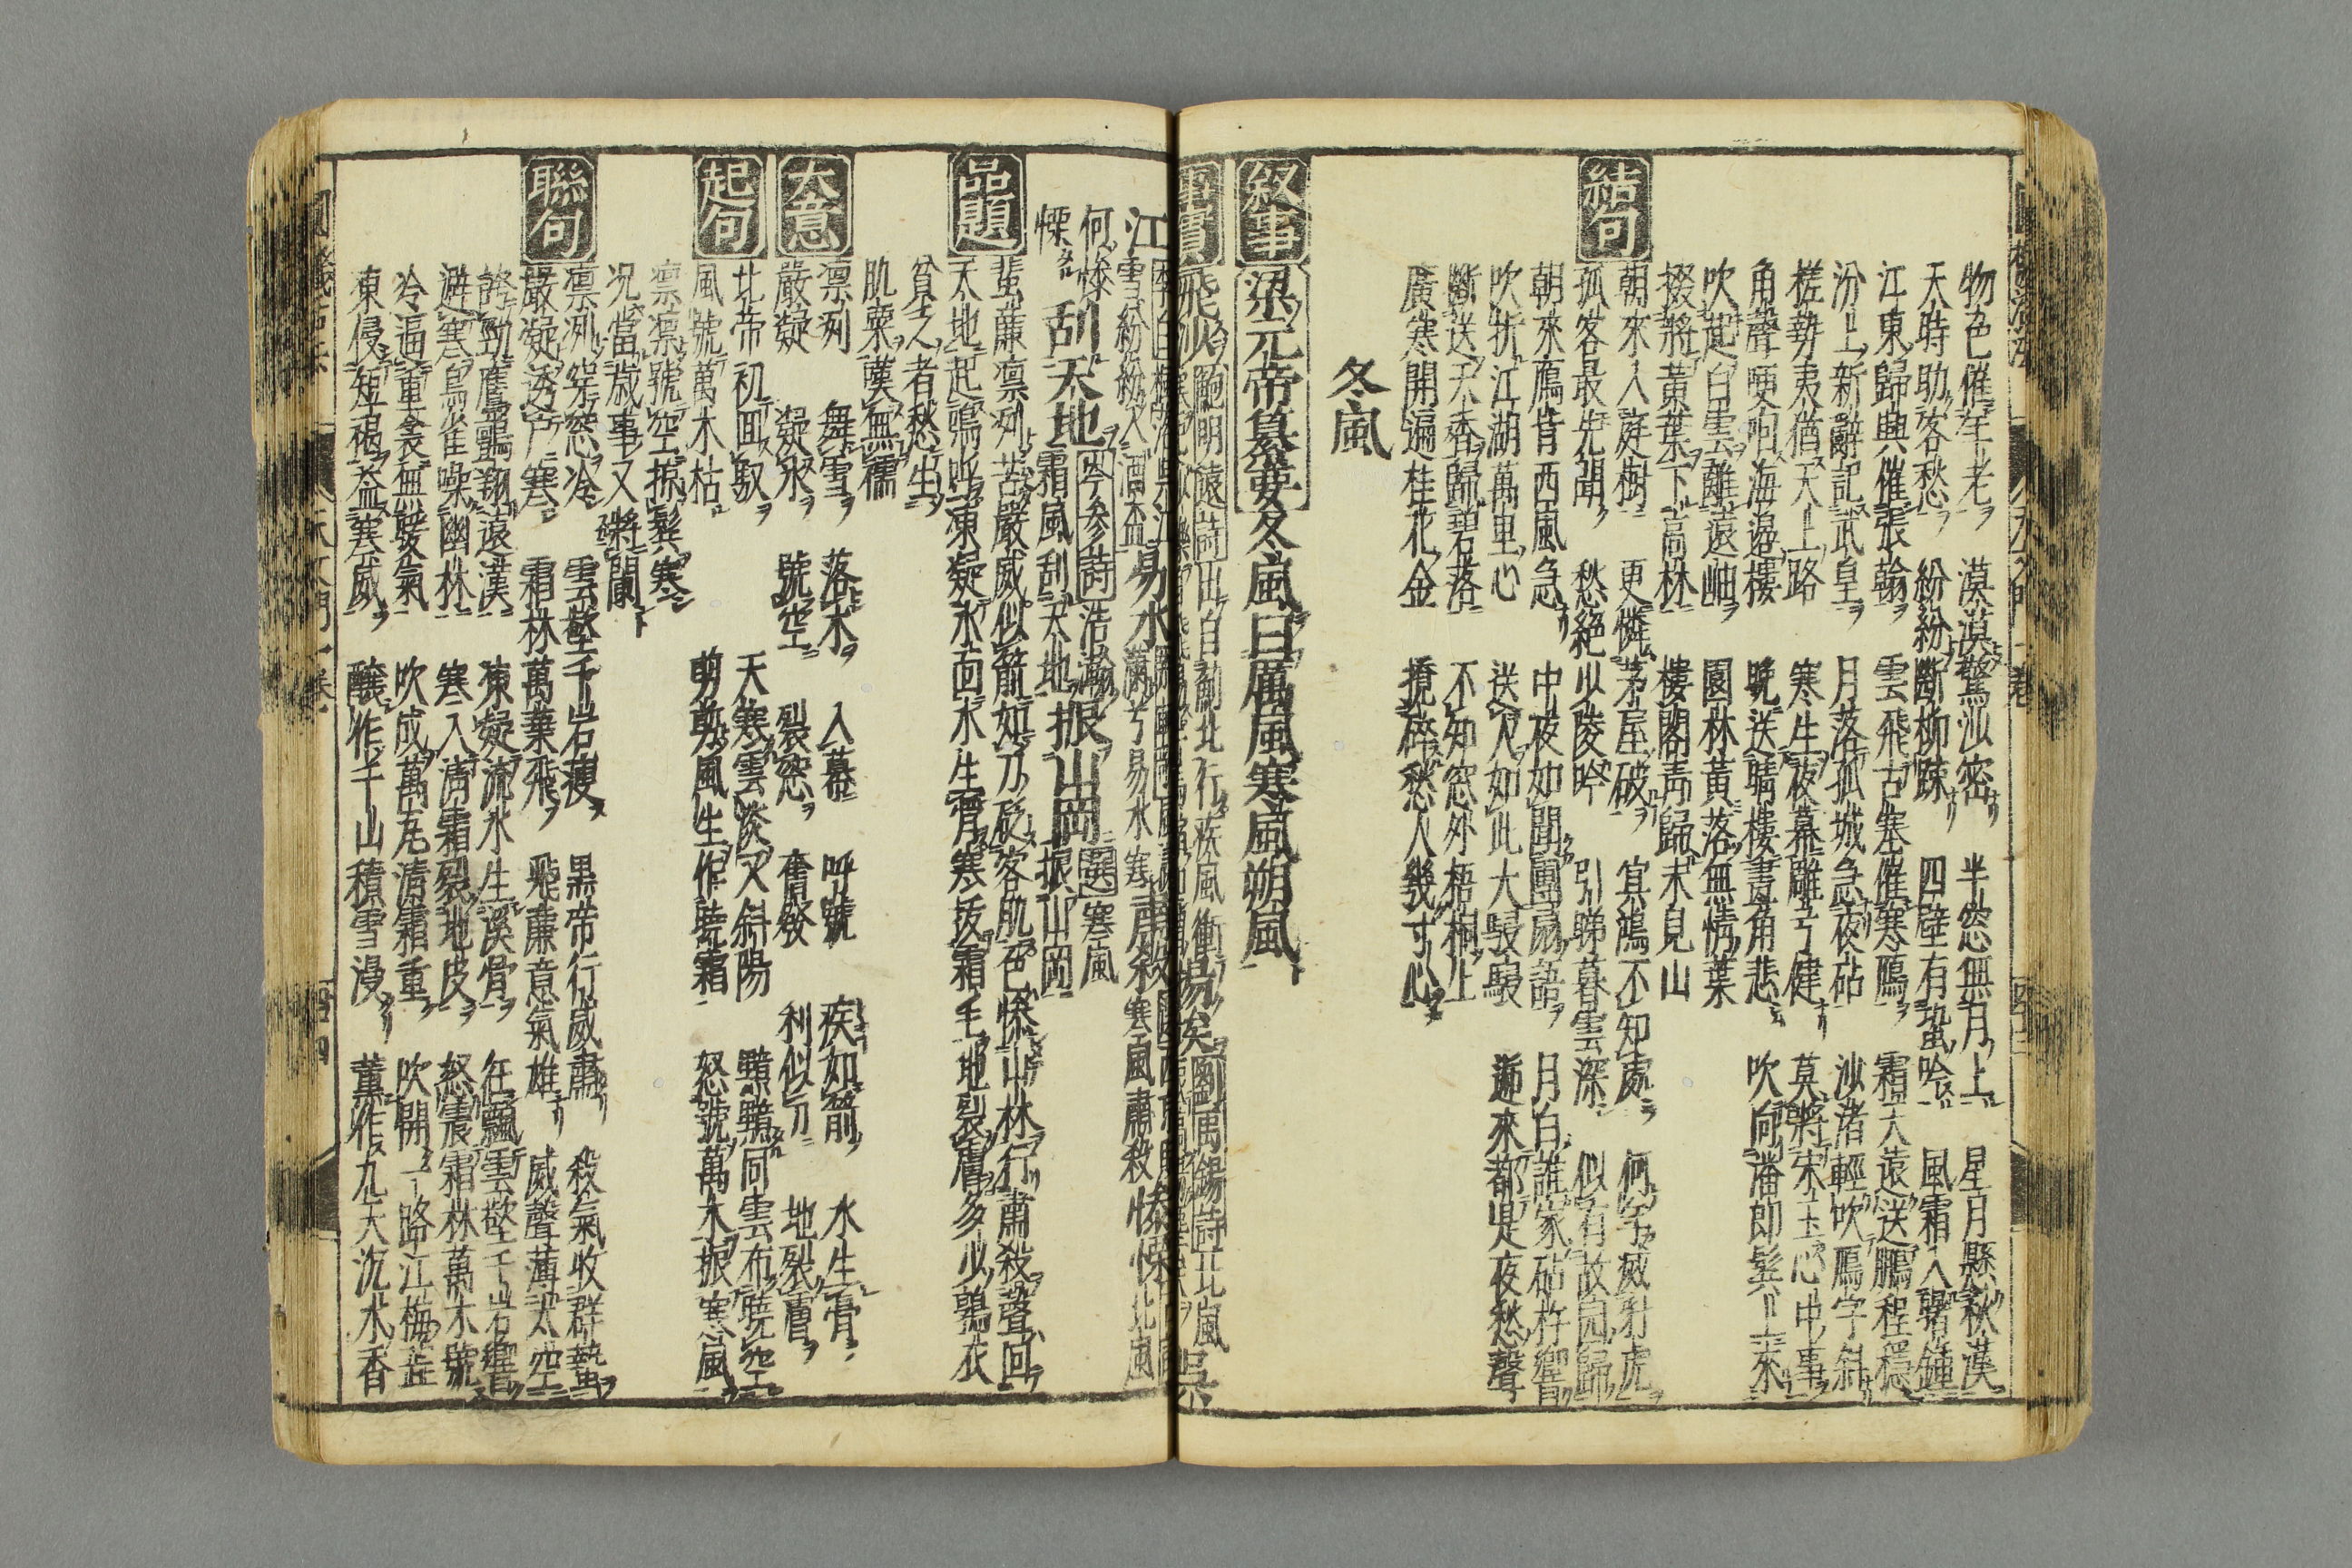 物色催年老 漠漠驚沙密 半窓無月上 星月懸秋漢
天時助客愁 紛紛斷柳踈 四壁有蛩吟 風霜入曙鐘
江東歸興催張翰 雲飛古塞催寒鴈 霜天遠送鵬程穩
汾上新辭記武皇 月落孤城急夜砧 沙渚輕吹鴈字斜
槎勢夷猶天上路 寒生夜幕雕弓健 莫將宋玉心中事
角聲哽咽海邊樓 曉送晴樓畫角悲 吹向潘郎鬂上來
吹起白雲離遠岫 園林黃落無情葉
掇將黃葉下高林 樓閣靑歸未見山
結句
朝來入庭樹 更憐茅屋破 冥鴻不知處 何年愿射虎
孤客最先聞 愁絕以陵吟 引睇暮雲深 似有故園歸
朝來鴈背西風急 中夜如聞團扇語 月白誰家砧杵響
吹折江湖萬里心 送人如此大駸駸 遞來都是夜愁聲
斷送天香歸碧落 不知窓外梧桐上
廣寒開遍桂花金 攪碎愁人幾寸心
冬風
敘事 梁元帝纂要冬風曰厲風寒風朔風
事實 飛沙 鮑明遠詩出自薊北行疾風衝 揚埃 劉禹錫詩北風 吳
江 雪紛紛人酒盃 易水 蕭兮易水寒 肅殺 寒風肅殺 慘慄 北風
何慘慄 刮天地 岑參詩浩瀚霜風刮天地 振山岡 選寒風振山岡
品題
蜚廉凜冽苦嚴威似箭如刀砭客肌色慘山林行肅殺聲回
天地起鴻呼凍凝水面水生骨寒拔霜毛地裂膚多少鶉衣
貧乏者愁生肌粟嘆無襦
大意
凜冽 舞雪 落木 入幕 呼號 疾如箭 水生骨
嚴凝 凝水 號空 裂窓 奮發 利似刀 地裂膚
起句
北帝初回馭 天寒雲淡日斜陽 黯黯同雲布曉空
風號萬木枯 剪剪風生作曉霜 怒號萬木振寒風
凜凜號空掠鬂寒
況當歲事又將闌
聯句
凜冽穿窓冷 雲壑千岩瘦 黑帝行威肅 殺氣收群蟄
嚴凝透戶寒 霜林萬葉飛 飛廉意氣雄 威聲薄太空
誇勁鷹鸇翔遠漢 凍凝流水生溪骨 狂飄雲壑千岩響
避寒烏雀噪幽林 寒入淸霜裂地皮 怒震霜林萬木號
冷逼重衾無暖氣 吹成萬瓦淸霜重 吹開一路江梅蕋
凍侵短褐益寒威 釀作千山積雪漫 薰作九天沉水香